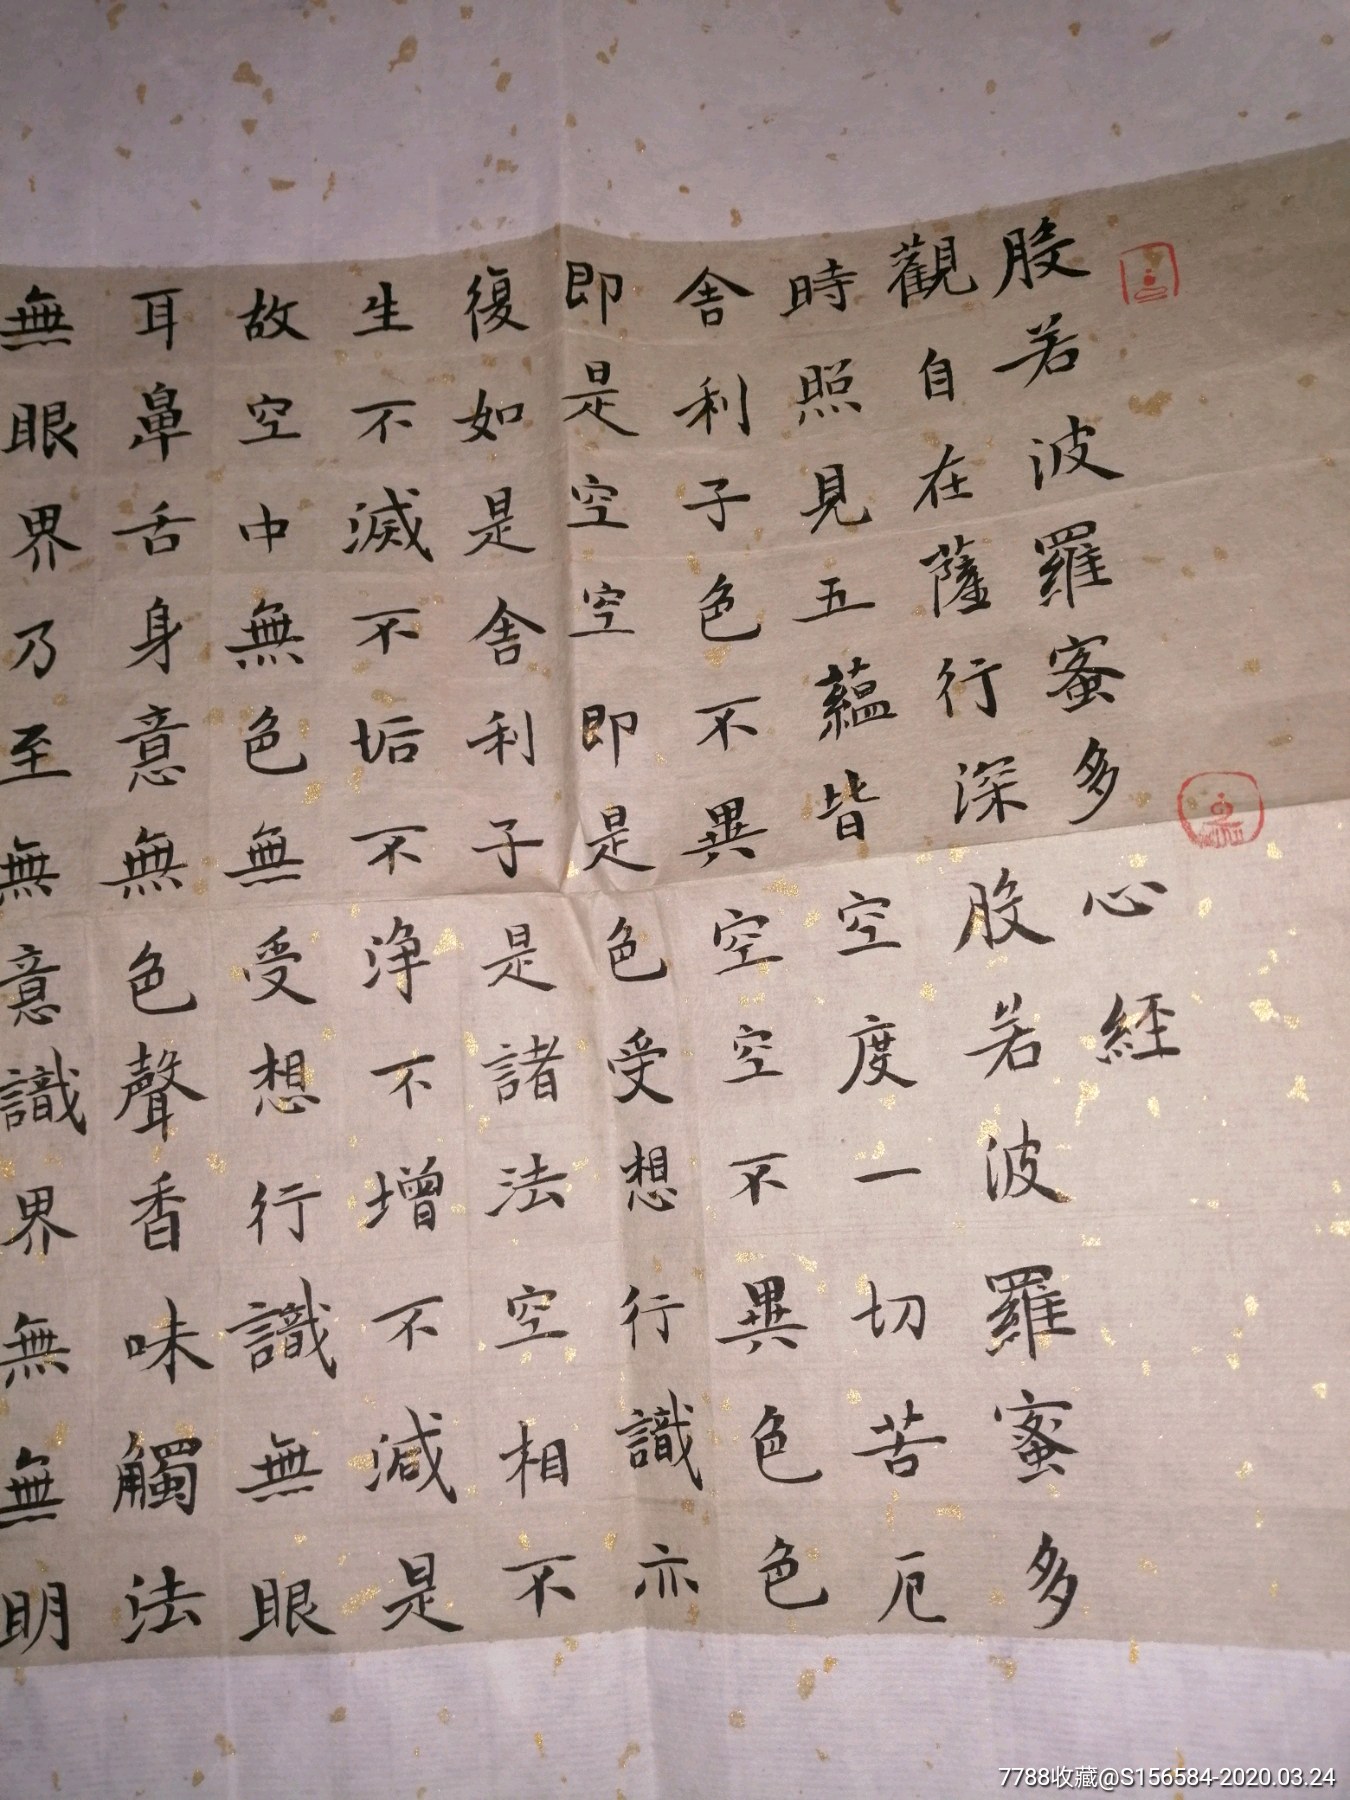 股若波羅蜜多心經
觀自在薩行深股若波羅蜜多
時照見五蘊皆空度一切苦厄
舍利子色不異空空不異色色
即是空空即是色受想行識亦
復如是舍利子是諸法空相不
生不滅不垢不浄不增不減是
故空中無色無受想行識無眼
耳鼻舌身意無色聲香味觸法
無眼界乃至無意識界無無明
7788收藏@S156584-2020.03.24